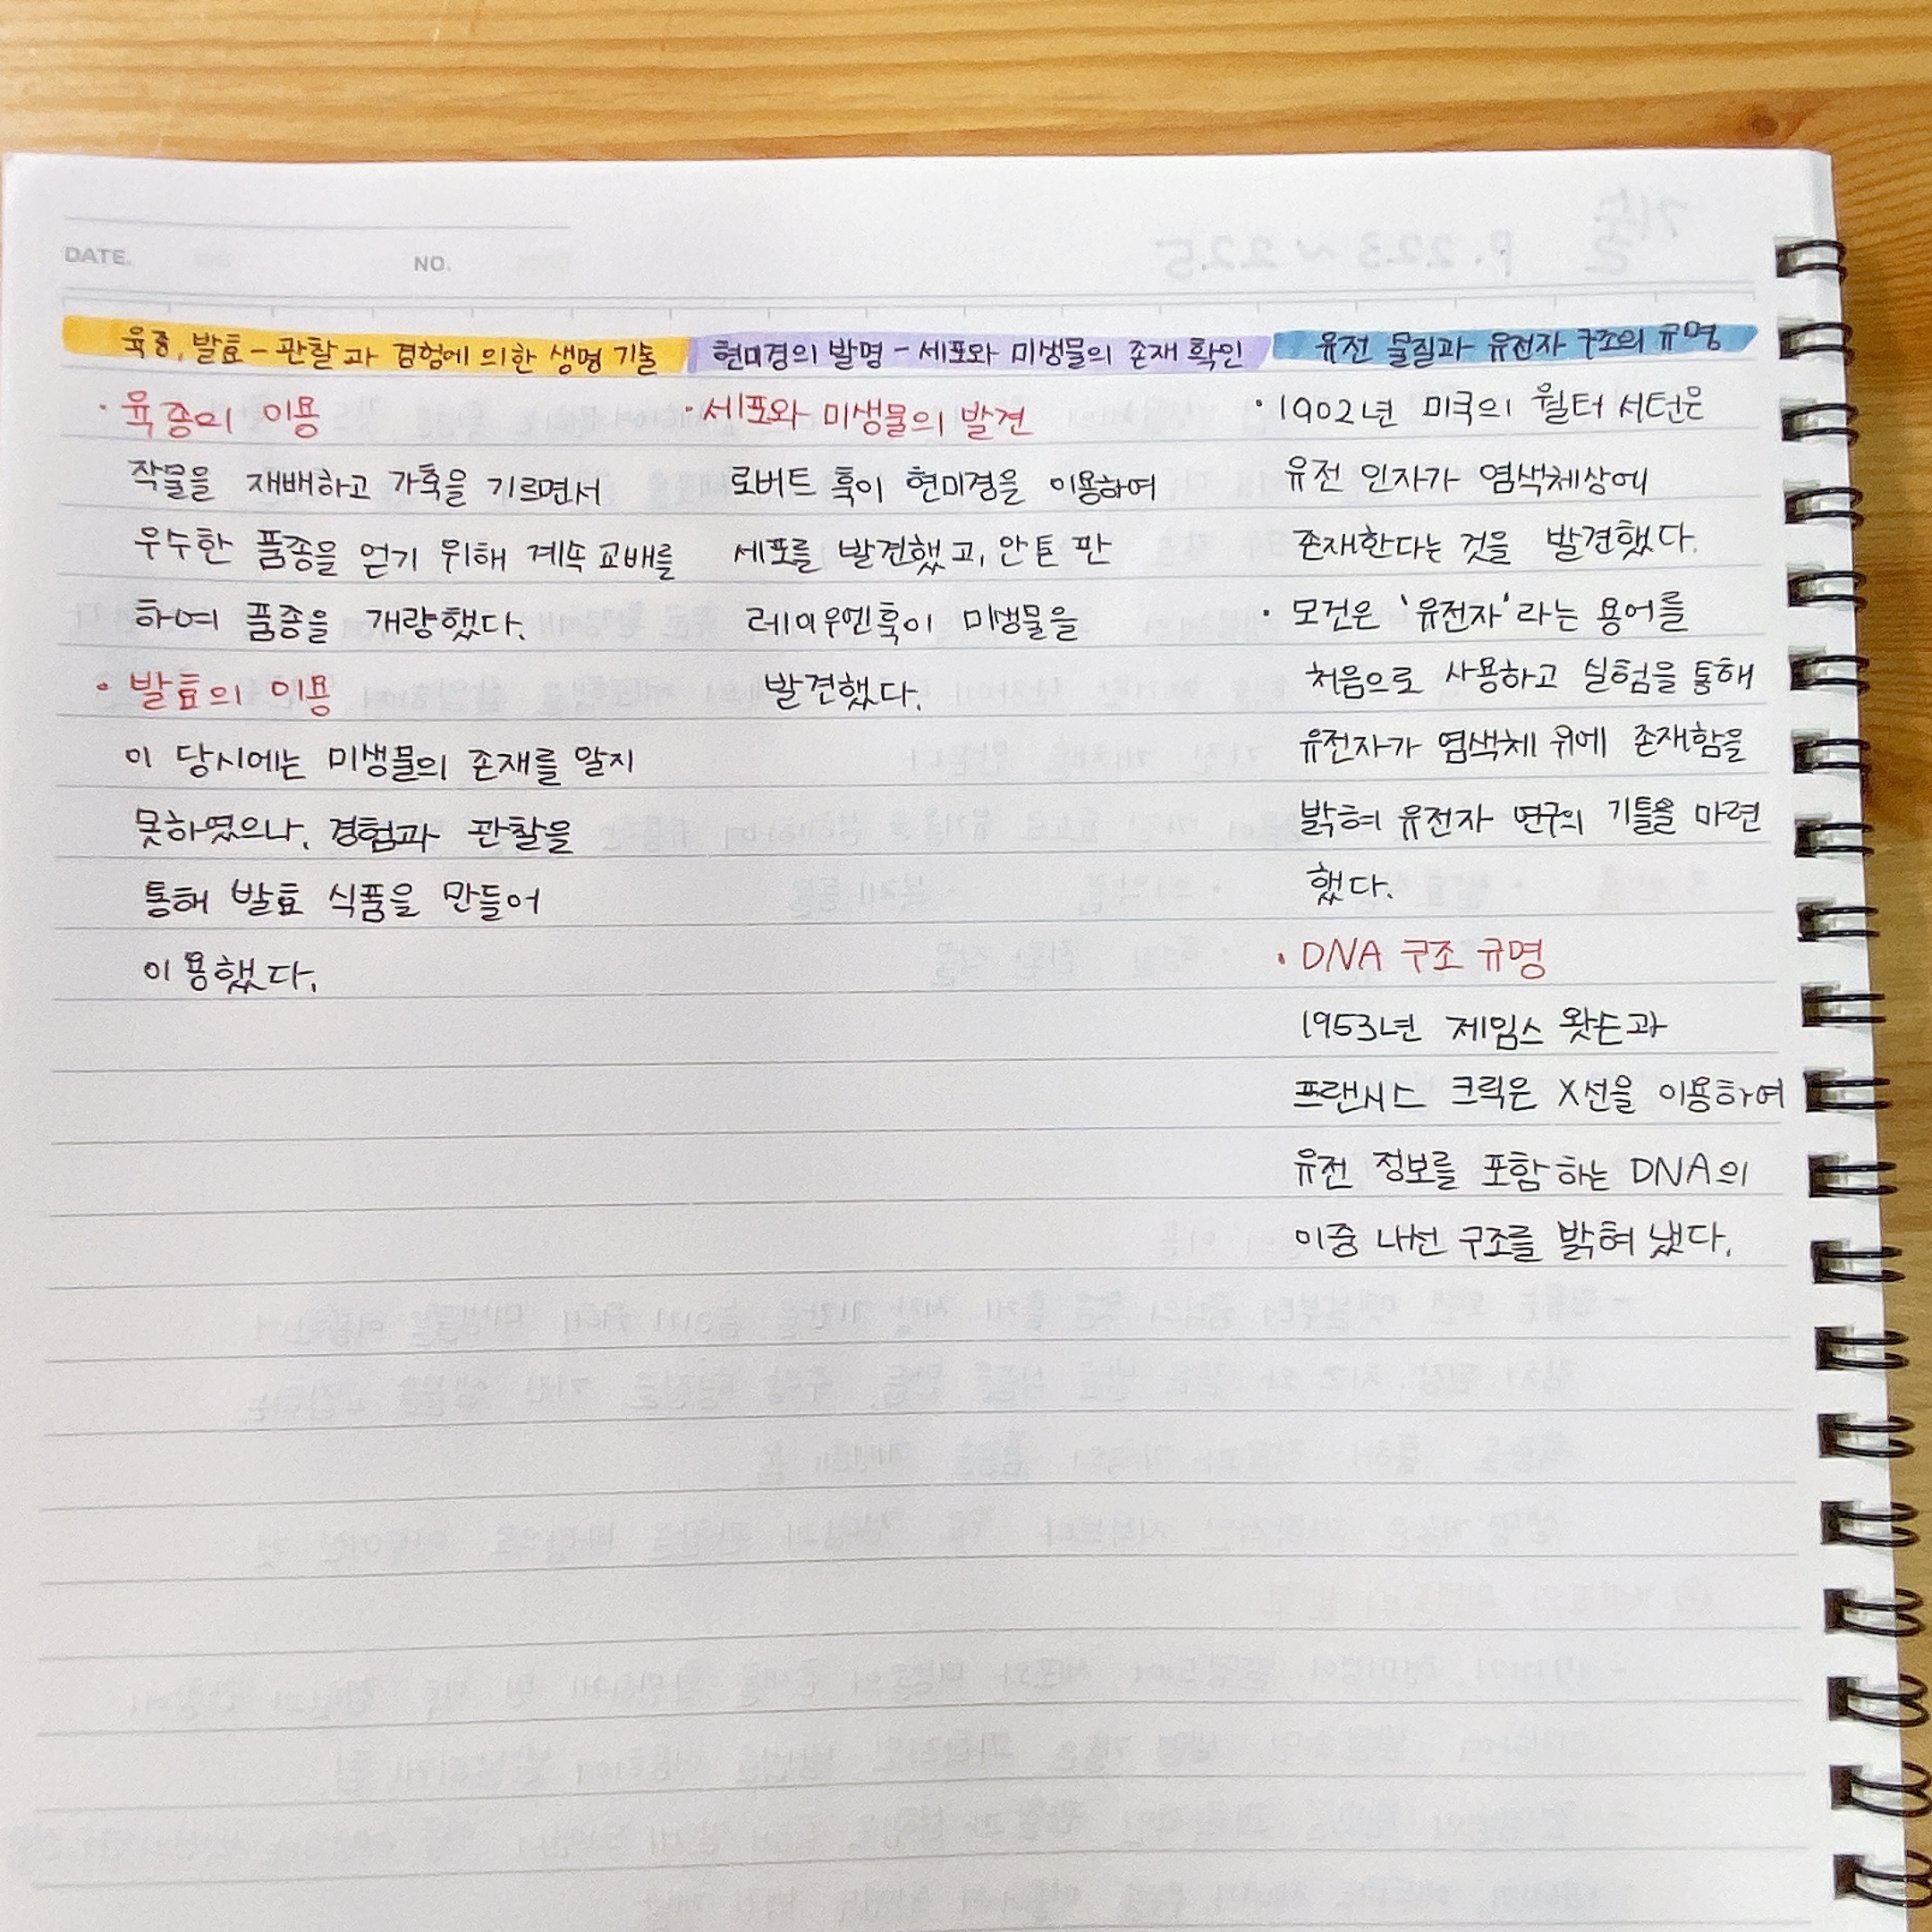 DATE.
NO.
육종, 발효 - 관찰과 경험에 의한 생명 기술
· 육종의 이용
작물을 재배하고 가축을 기르면서
우수한 품종을 얻기 위해 계속 교배를
하여 품종을 개량했다.
· 발효의 이용
이 당시에는 미생물의 존재를 알지
못하였으나, 경험과 관찰을
통해 발효 식품을 만들어
이용했다.
현미경의 발명 - 세포와 미생물의 존재 확인
· 세포와 미생물의 발견
로버트 훅이 현미경을 이용하여
세포를 발견했고, 안톤 판
레이우엔훅이 미생물을
발견했다.
유전 물질과 유전자 구조의 규명
· 1902년 미국의 월터 서턴은
유전 인자가 염색체상에
존재한다는 것을 발견했다.
· 모건은 '유전자'라는 용어를
처음으로 사용하고 실험을 통해
유전자가 염색체 위에 존재함을
밝혀 유전자 연구의 기틀을 마련
했다.
· DNA 구조 규명
1953년 제임스 왓슨과
프랜시스 크릭은 X선을 이용하여
유전 정보를 포함하는 DNA의
이중 나선 구조를 밝혀 냈다.